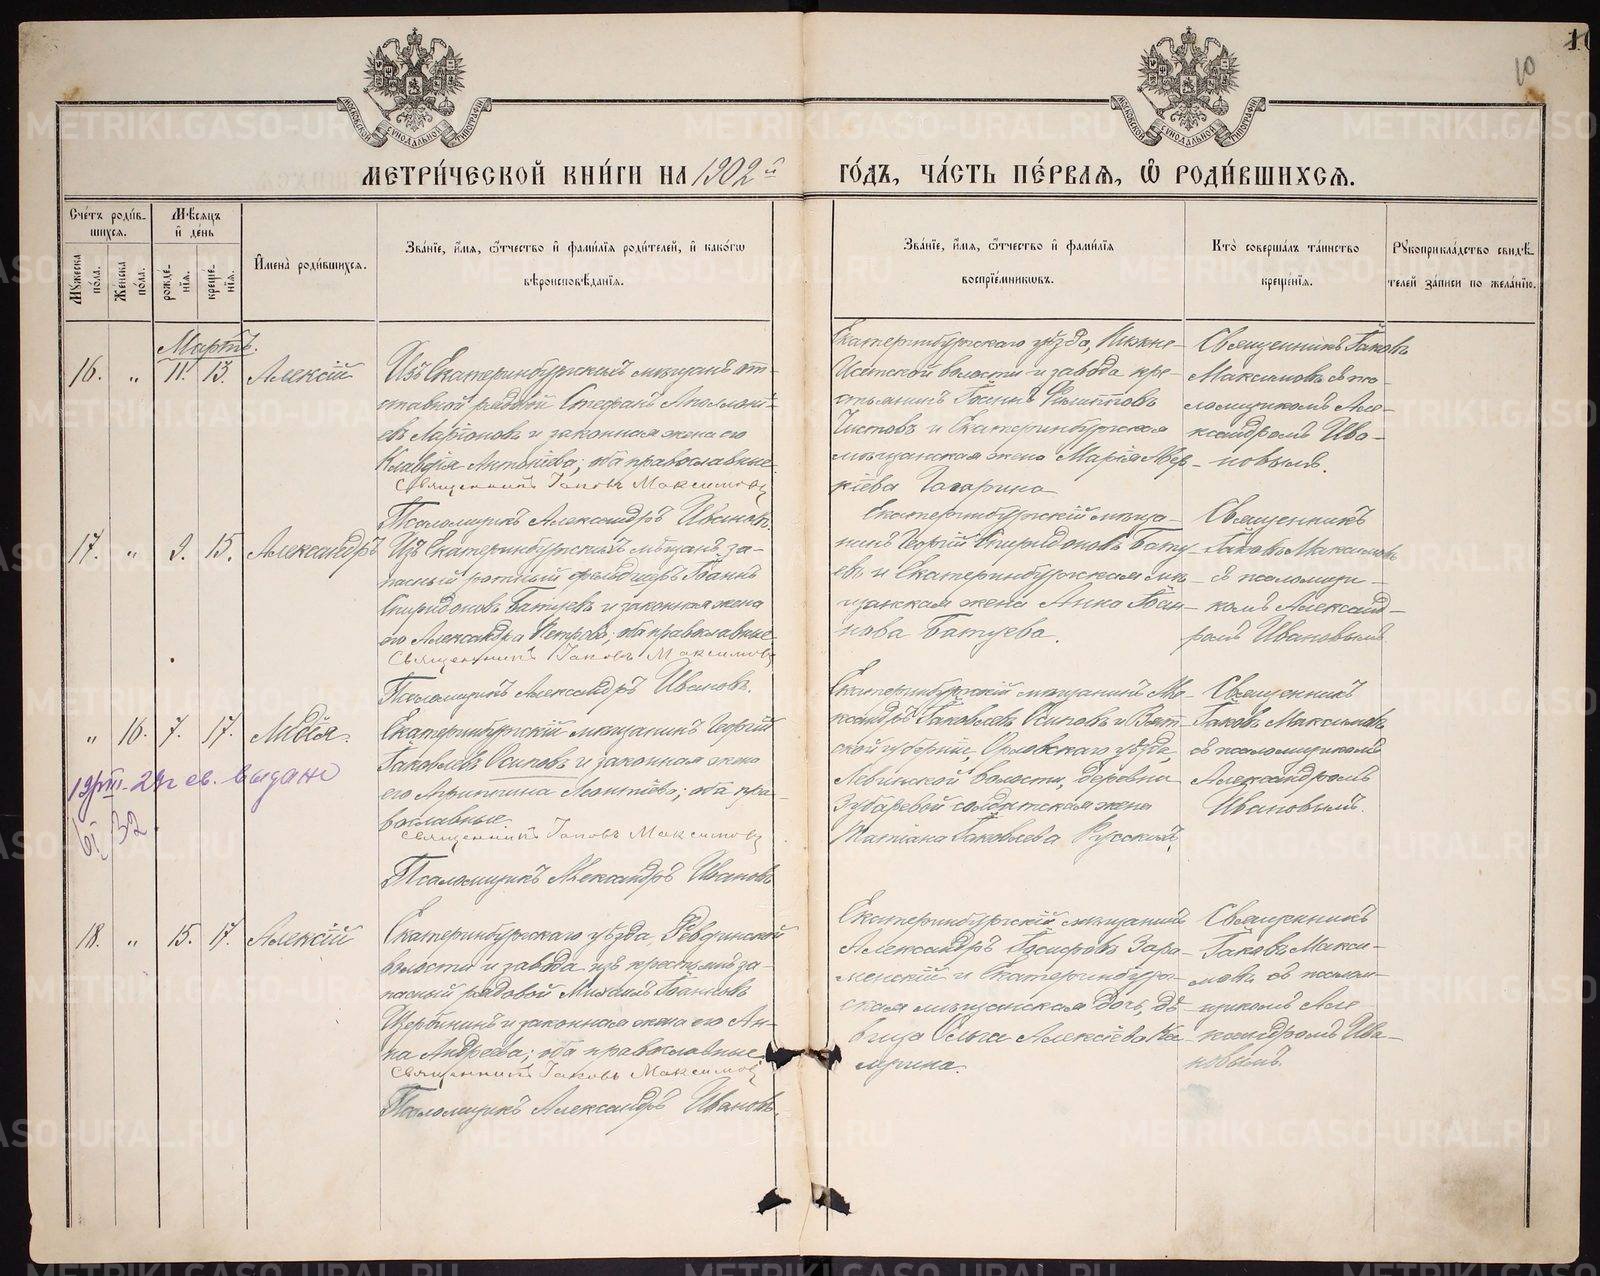 10
МЕТРИ́ЧЕСКОЙ КНИ́ГИ НА 1902й
ГО́ДЪ, ЧА́СТЬ ПЕ́РВАѦ, Ѡ҆ РОДИ́ВШИХСѦ.
Сче́тъ роди́в-
шихсѧ.
Мꙋ́жеска по́ла.
Же́нска по́ла.
Мѣ́сѧцъ
и҆ де́нь
рожде́-
нїѧ.
креще́-
нїѧ.
И҆мена̀ роди́вшихсѧ.
Зва́нїе, и҆́мѧ, ѻ҆́тчество и҆ фами́лїѧ роди́телей, и҆ како́гѡ
вѣроисповѣ́данїѧ.
Зва́нїе, и҆́мѧ, ѻ҆́тчество и҆ фами́лїѧ
воспрїе́мникѡвъ.
Кто̀ соверша́лъ та́инство
креще́нїѧ.
Рꙋкоприкла́дство свидѣ́-
телей за́писи по жела́нїю.
Мартъ.
16. „ 11. 13. Алексій
Изъ Екатеринбургскихъ мѣщанъ от-
ставной рядовой Стефанъ Аполлоні-
евъ Ларіоновъ и законная жена его
Клавдія Антоніева; оба православные.
Священникъ Іаковъ Максимовъ
Псаломщикъ Александръ Ивановъ.
Екатеринбургскаго уѣзда, Нижне-
Исетской волости и завода кре-
стьянинъ Іоаннъ Филипповъ
Чистовъ и Екатеринбургская
мѣщанская жена Марія Авер-
кіева Гагарина
Священникъ Іаковъ
Максимовъ съ пса-
ломщикомъ Але-
ксандромъ Ива-
новымъ.
17. „ 9. 15. Александръ
Изъ Екатеринбургскихъ мѣщанъ за-
пасный ротный фельдшеръ Іоаннъ
Спиридоновъ Батуевъ и законная жена
его Александра Петрова; оба православные.
Священникъ Іаковъ Максимовъ
Псаломщикъ Александръ Ивановъ.
Екатеринбургскій мѣща-
нинъ Георгій Спиридоновъ Бату-
евъ и Екатеринбургская мѣ-
щанская жена Анна Іоан-
нова Батуева.
Священникъ
Іаковъ Максимовъ
съ псаломщи-
комъ Александ-
ромъ Ивановымъ
„ 16. 7. 17. Лидія.
Екатеринбургскій мѣщанинъ Георгій
Іаковлевъ Осиповъ и законная жена
его Агриппина Леонтіева; оба пра-
вославные.
Священникъ Іаковъ Максимовъ
Псаломщикъ Александръ Ивановъ
Екатеринбургскій мѣщанинъ Але-
ксандръ Іаковлевъ Осиповъ и Вят-
ской губерніи, Орловскаго уѣзда,
Левинской волости, деревни
Зубаревой солдатская жена
Татіана Іаковлева Русскихъ.
Священникъ
Іаковъ Максимовъ
съ псаломщикомъ
Александромъ
Ивановымъ.
св. выдано
32.
18. „ 15. 17. Алексій
Екатеринбургскаго уѣзда, Ревдинской
волости и завода изъ крестьянъ за-
пасный рядовой Михаилъ Іоанновъ
Щербининъ и законная жена его Ан-
на Андреева; оба православные.
Священникъ Іаковъ Максимовъ
Псаломщикъ Александръ Ивановъ.
Екатеринбургскій мѣщанинъ
Александръ Іосифовъ Зара-
менскій и Екатеринбург-
ская мѣщанская дочь, дѣ-
вица Ольга Алексіева Ка-
мрина.
Священникъ
Іаковъ Макси-
мовъ съ псалом-
щикомъ Але
ксандромъ Ива-
новымъ.